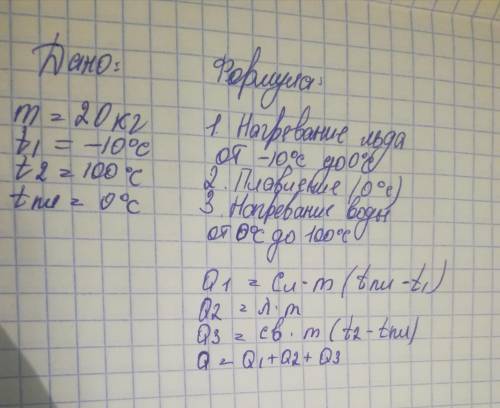 Дано:
m = 20 кг
t1 = -10°c
t2 = 100°c
tпл = 0°c
Формула:
1. Нагревание льда
от -10°c до 0°c
2. Плавление (0°c)
3. Нагревание воды
от 0°c до 100°c
Q1 = Cл · m (tпл - t1)
Q2 = λ · m
Q3 = Cв · m (t2 - tпл)
Q = Q1 + Q2 + Q3